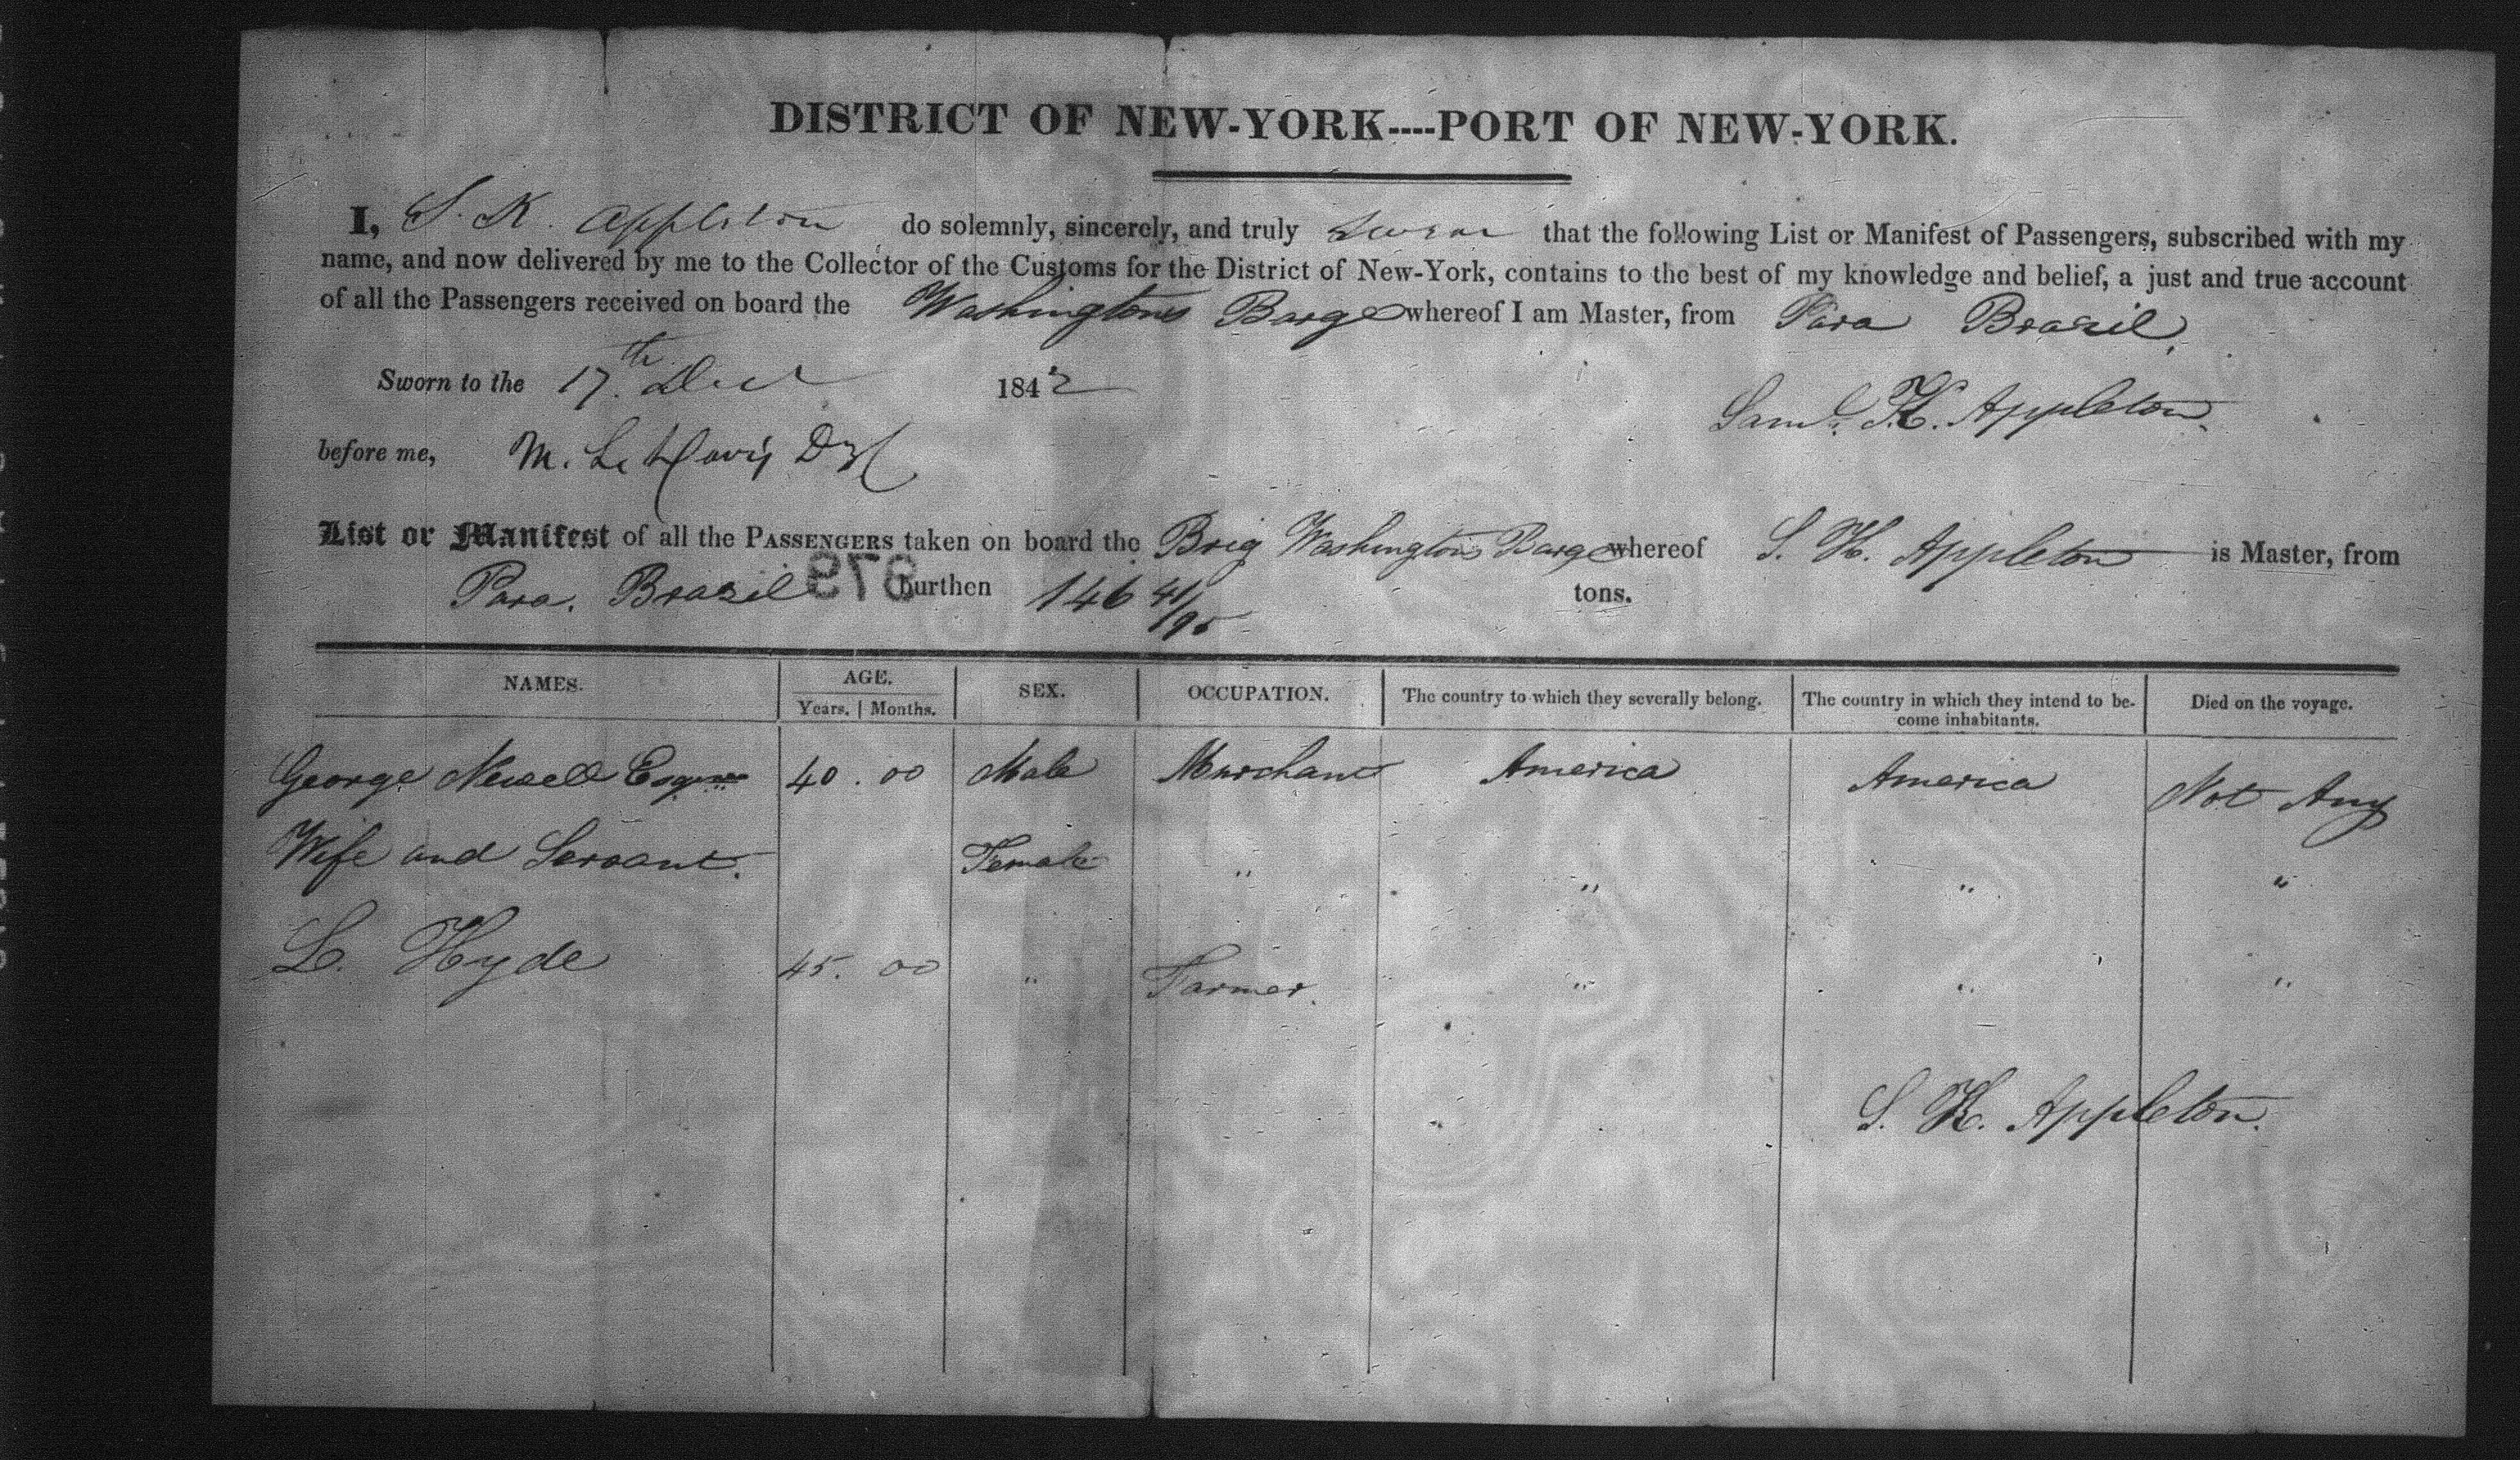 DISTRICT OF NEW-YORK----PORT OF NEW-YORK.
I, S. K. Appleton do solemnly, sincerely, and truly swear that the following List or Manifest of Passengers, subscribed with my
name, and now delivered by me to the Collector of the Customs for the District of New-York, contains to the best of my knowledge and belief, a just and true account
of all the Passengers received on board the Washington's Barge whereof I am Master, from Para Brazil,
Sworn to the 17th Dec 1842
Saml. K. Appleton.
before me, M. L. Davis
List or Manifest of all the PASSENGERS taken on board the Brig Washington's Barge whereof S. K. Appleton is Master, from
Para. Brazil 979 burthen 146 41/95 tons.
NAMES. AGE. SEX. OCCUPATION. The country to which they severally belong. The country in which they intend to be- Died on the voyage.
Years. | Months. come inhabitants.
George Newell Esqr 40 . 00 Male Merchant America America Not Any
Wife and Servant. Female " " " "
L. Hyde 45. 00 " Farmer. " " "
S. K. Appleton.